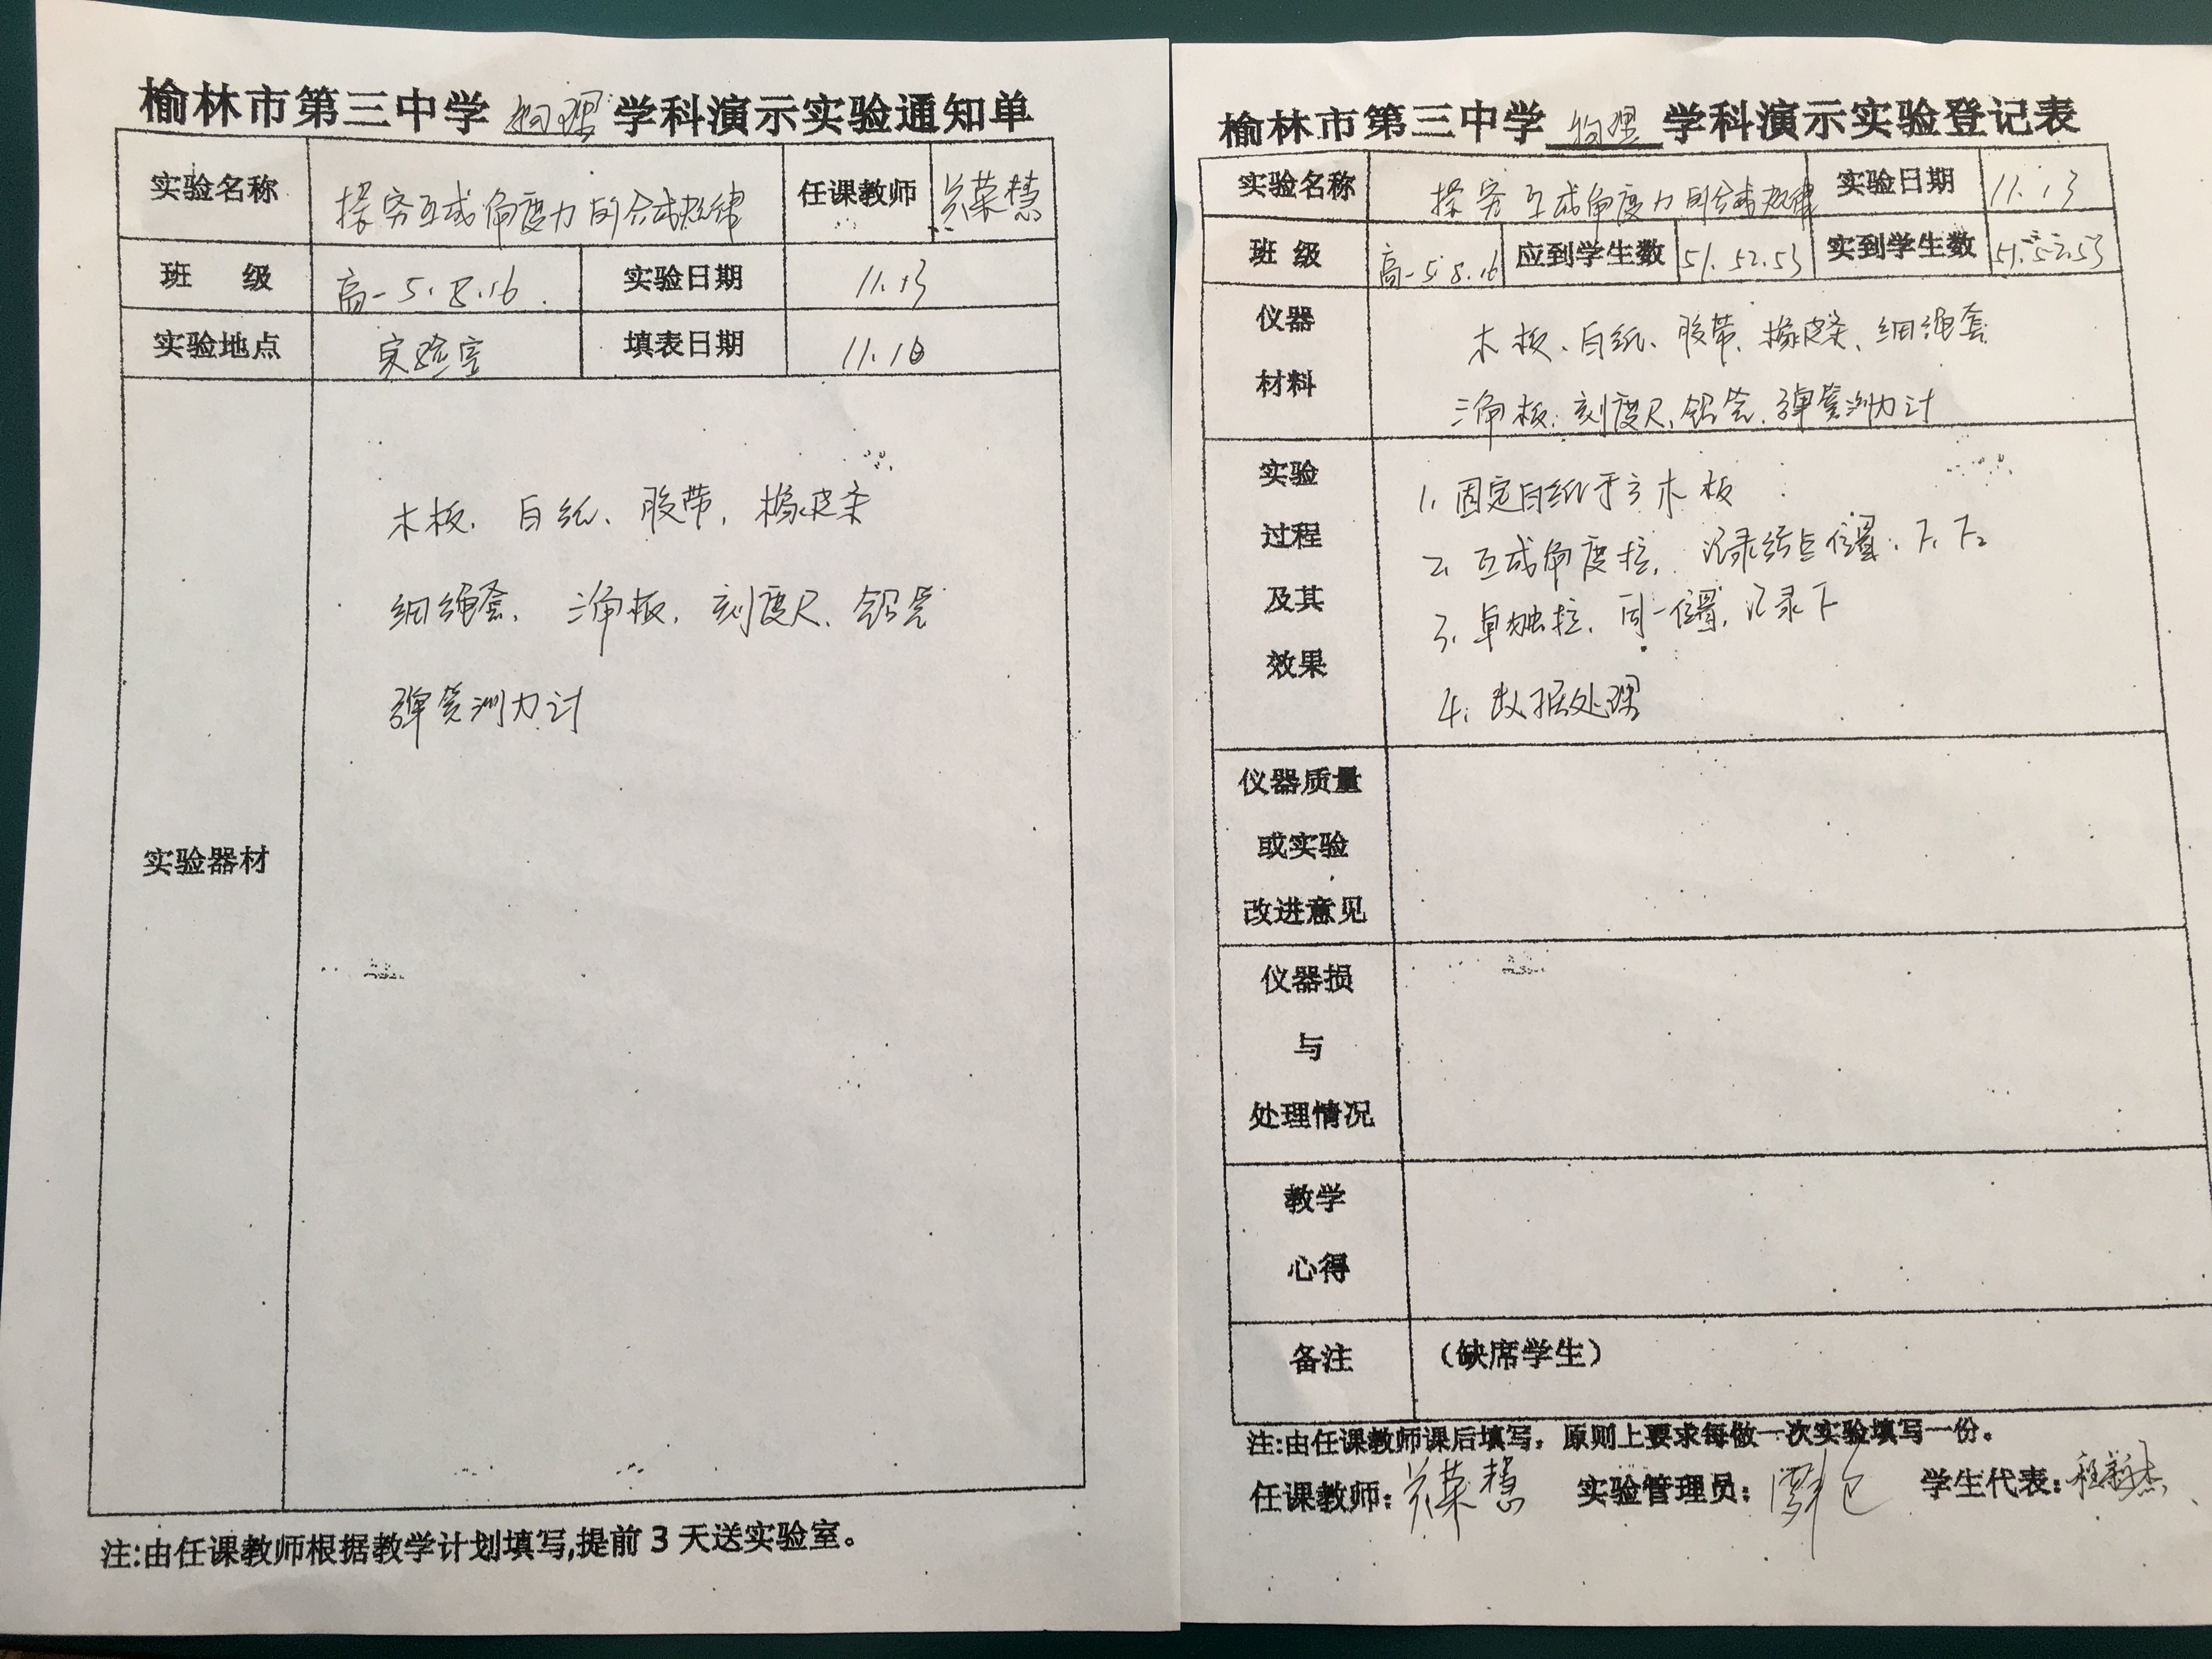 榆林市第三中学 物理 学科演示实验通知单
实验名称 探究互成角度力的合成规律 任课教师 兰荣慧
班 级 高一5.8.16. 实验日期 11.13
实验地点 实验室 填表日期 11.10
实验器材
木板、白纸、胶带、橡皮条
细绳套、三角板、刻度尺、铅笔
弹簧测力计
注:由任课教师根据教学计划填写,提前3天送实验室。
榆林市第三中学 物理 学科演示实验登记表
实验名称 探究互成角度力的合成规律 实验日期 11.13
班 级 高一5.8.16 应到学生数 51.52.53 实到学生数 51.52.53
仪器
材料
木板、白纸、胶带、橡皮条、细绳套
三角板、刻度尺、铅笔、弹簧测力计
实验
过程
及其
效果
1、固定白纸于木板
2、互成角度拉,记录结点位置、F₁ F₂
3、单独拉,同一位置,记录F
4、数据处理
仪器质量
或实验
改进意见
仪器损
与
处理情况
教学
心得
备注 (缺席学生)
注:由任课教师课后填写,原则上要求每做一次实验填写一份。
任课教师:兰荣慧 实验管理员: 学生代表: